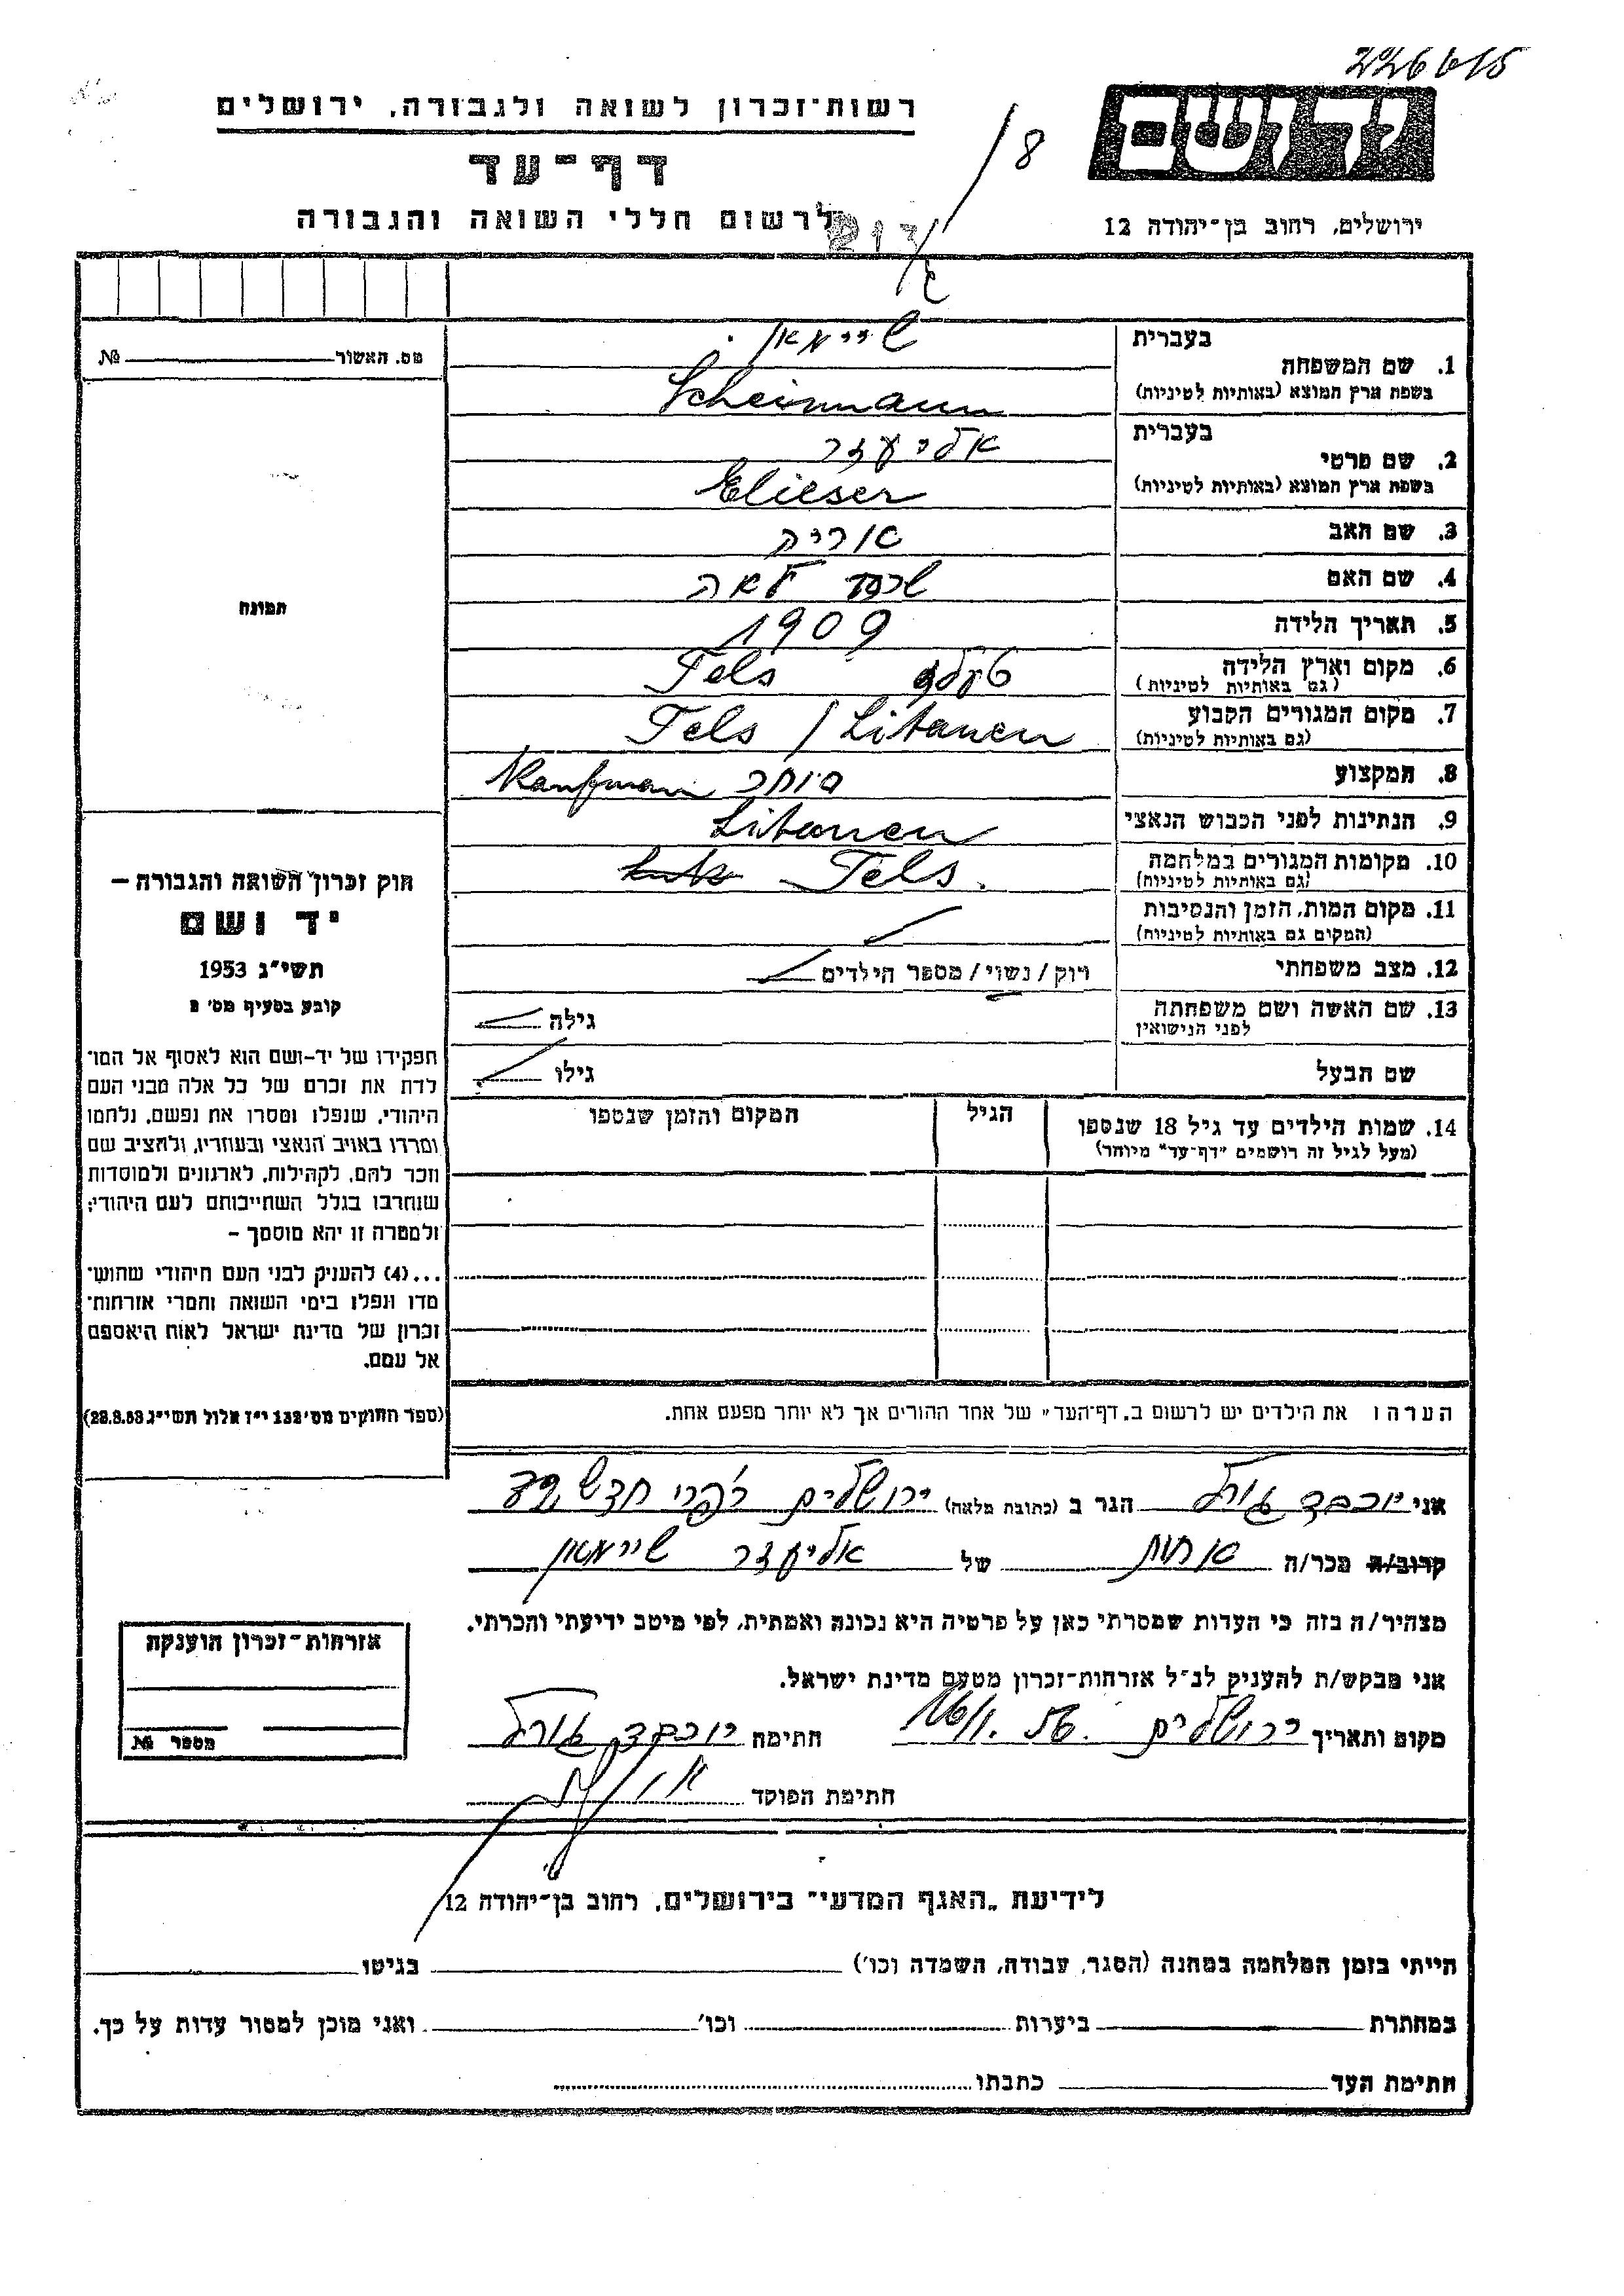 226615
רשות־זכרון לשואה ולגבורה, ירושלים
ידושם
8
דף־עד
לרשום חללי השואה והגבורה
ירושלים, רחוב בן־יהודה 12
בעברית
שיימאן
1. שם המשפחה
בשפת ארץ המוצא (באותיות לטיניות)
Scheinmann
בעברית
אליעזר
2. שם פרטי
בשפת ארץ המוצא (באותיות לטיניות)
Elieser
3. שם האב
4. שם האם
לאה
5. תאריך הלידה
1909
6. מקום וארץ הלידה
(גם באותיות לטיניות)
Tels
7. מקום המגורים הקבוע
(גם באותיות לטיניות)
Tels / Litauen
8. המקצוע
סוחר Kaufman
9. הנתינות לפני הכבוש הנאצי
Litauen
10. מקומות המגורים במלחמה
(גם באותיות לטיניות)
Tels.
11. מקום המות, הזמן והנסיבות
(המקום גם באותיות לטיניות)
12. מצב משפחתי
רוק/נשוי/מספר הילדים
13. שם האשה ושם משפחתה
לפני הנישואין
גילה
שם הבעל
גילו
14. שמות הילדים עד גיל 18 שנספו
(מעל לגיל זה רושמים "דף־עד" מיוחד)
הגיל
המקום והזמן שנספו
הערה: את הילדים יש לרשום ב„דף־העד" של אחד ההורים אך לא יותר מפעם אחת.
מס. האשור № 
תמונה
חוק זכרון השואה והגבורה –
יד ושם
תשי"ג 1953
קובע בסעיף מס׳ 2
תפקידו של יד־ושם הוא לאסוף אל המו־
לדת את זכרם של כל אלה מבני העם
היהודי, שנפלו ומסרו את נפשם, נלחמו
ומרדו באויב הנאצי ובעוזריו, ולהציב שם
וזכר להם, לקהילות, לארגונים ולמוסדות
שנחרבו בגלל השתייכותם לעם היהודי;
ולמטרה זו יהא מוסמך –
...(4) להעניק לבני העם היהודי שהוש־
מדו ונפלו בימי השואה והמרי אזרחות־
זכרון של מדינת ישראל לאות היאספם
אל עמם.
(ספר החוקים מס׳ 132 י"ז אלול תשי"ג 28.8.53)
אני יוכבד הגר ב (כתובת מלאה) ירושלים
קרוב/ה מכר/ה אחות של אליעזר שיימאן
מצהיר/ה בזה כי העדות שמסרתי כאן על פרטיה היא נכונה ואמתית, לפי מיטב ידיעתי והכרתי.
אני מבקש/ת להעניק לנ"ל אזרחות־זכרון מטעם מדינת ישראל.
מקום ותאריך ירושלים חתימה יוכבד
חתימת הפוקד
אזרחות־זכרון הוענקה
מספר №
לידיעת „האגף המדעי" בירושלים, רחוב בן־יהודה 12
הייתי בזמן המלחמה במחנה (הסגר, עבודה, השמדה וכו׳) בגיטו
במחתרת ביערות וכו׳ ואני מוכן למסור עדות על כך.
חתימת העד כתבתו